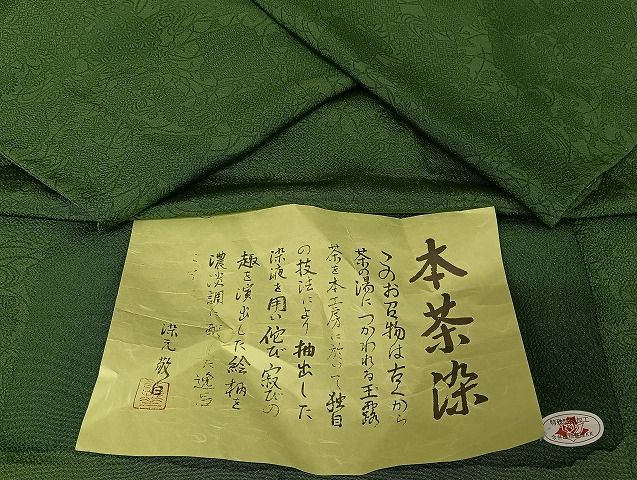 本茶染
このお召物は古くから
茶の湯につかわれる玉露
茶を本工房に於いて独自
の技法により抽出した
染液を用い侘び寂びの
趣を演出した絵柄を
濃淡調に した逸品
です
染元敬白